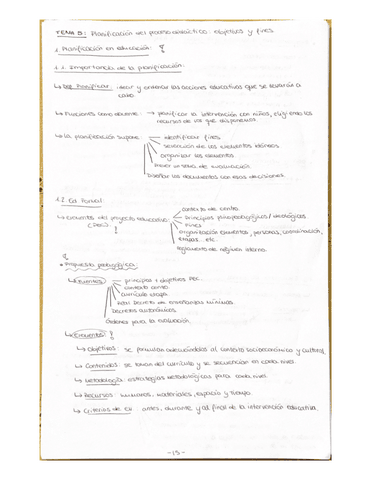 TEMA 5: Planificación del proceso didáctico: objetivos y fines
1. Planificación en educación.
1.1. Importancia de la planificación.
↳ Def. Planificar: idear y ordenar las acciones educativas que se llevarán a
cabo.
↳ Funciones como docente → planificar la intervención con niños, eligiendo los
recursos de los que disponemos
↳ La planificación supone identificar fines.
selección de los elementos idóneos
organizar los elementos.
Prever un sistema de evaluación.
Diseñar los documentos con esas decisiones.
1.2. Ed. formal
↳ Elementos del proyecto educativo
(PEC) !
contexto de centro
Principios psicopedagógicos / ideológicos
Fines
organización elementos, personas, coordinación,
etapas, etc.
reglamento de régimen interno
* Propuesta pedagógica:
↳ Fuentes
principios y objetivos PEC
contexto centro
currículo etapa
Real Decreto de enseñanzas mínimas
Decretos autonómicos
Órdenes para la evaluación.
↳ Elementos
↳ Objetivos: se formulan adecuándolos al contexto socioeconómico y cultural.
↳ Contenidos: se toman del currículo y se secuencian en cada nivel.
↳ Metodología: estrategias metodológicas para cada nivel.
↳ Recursos: humanos, materiales, espacio y tiempo.
↳ Criterios de ev: antes, durante y al final de la intervención educativa.
-15-